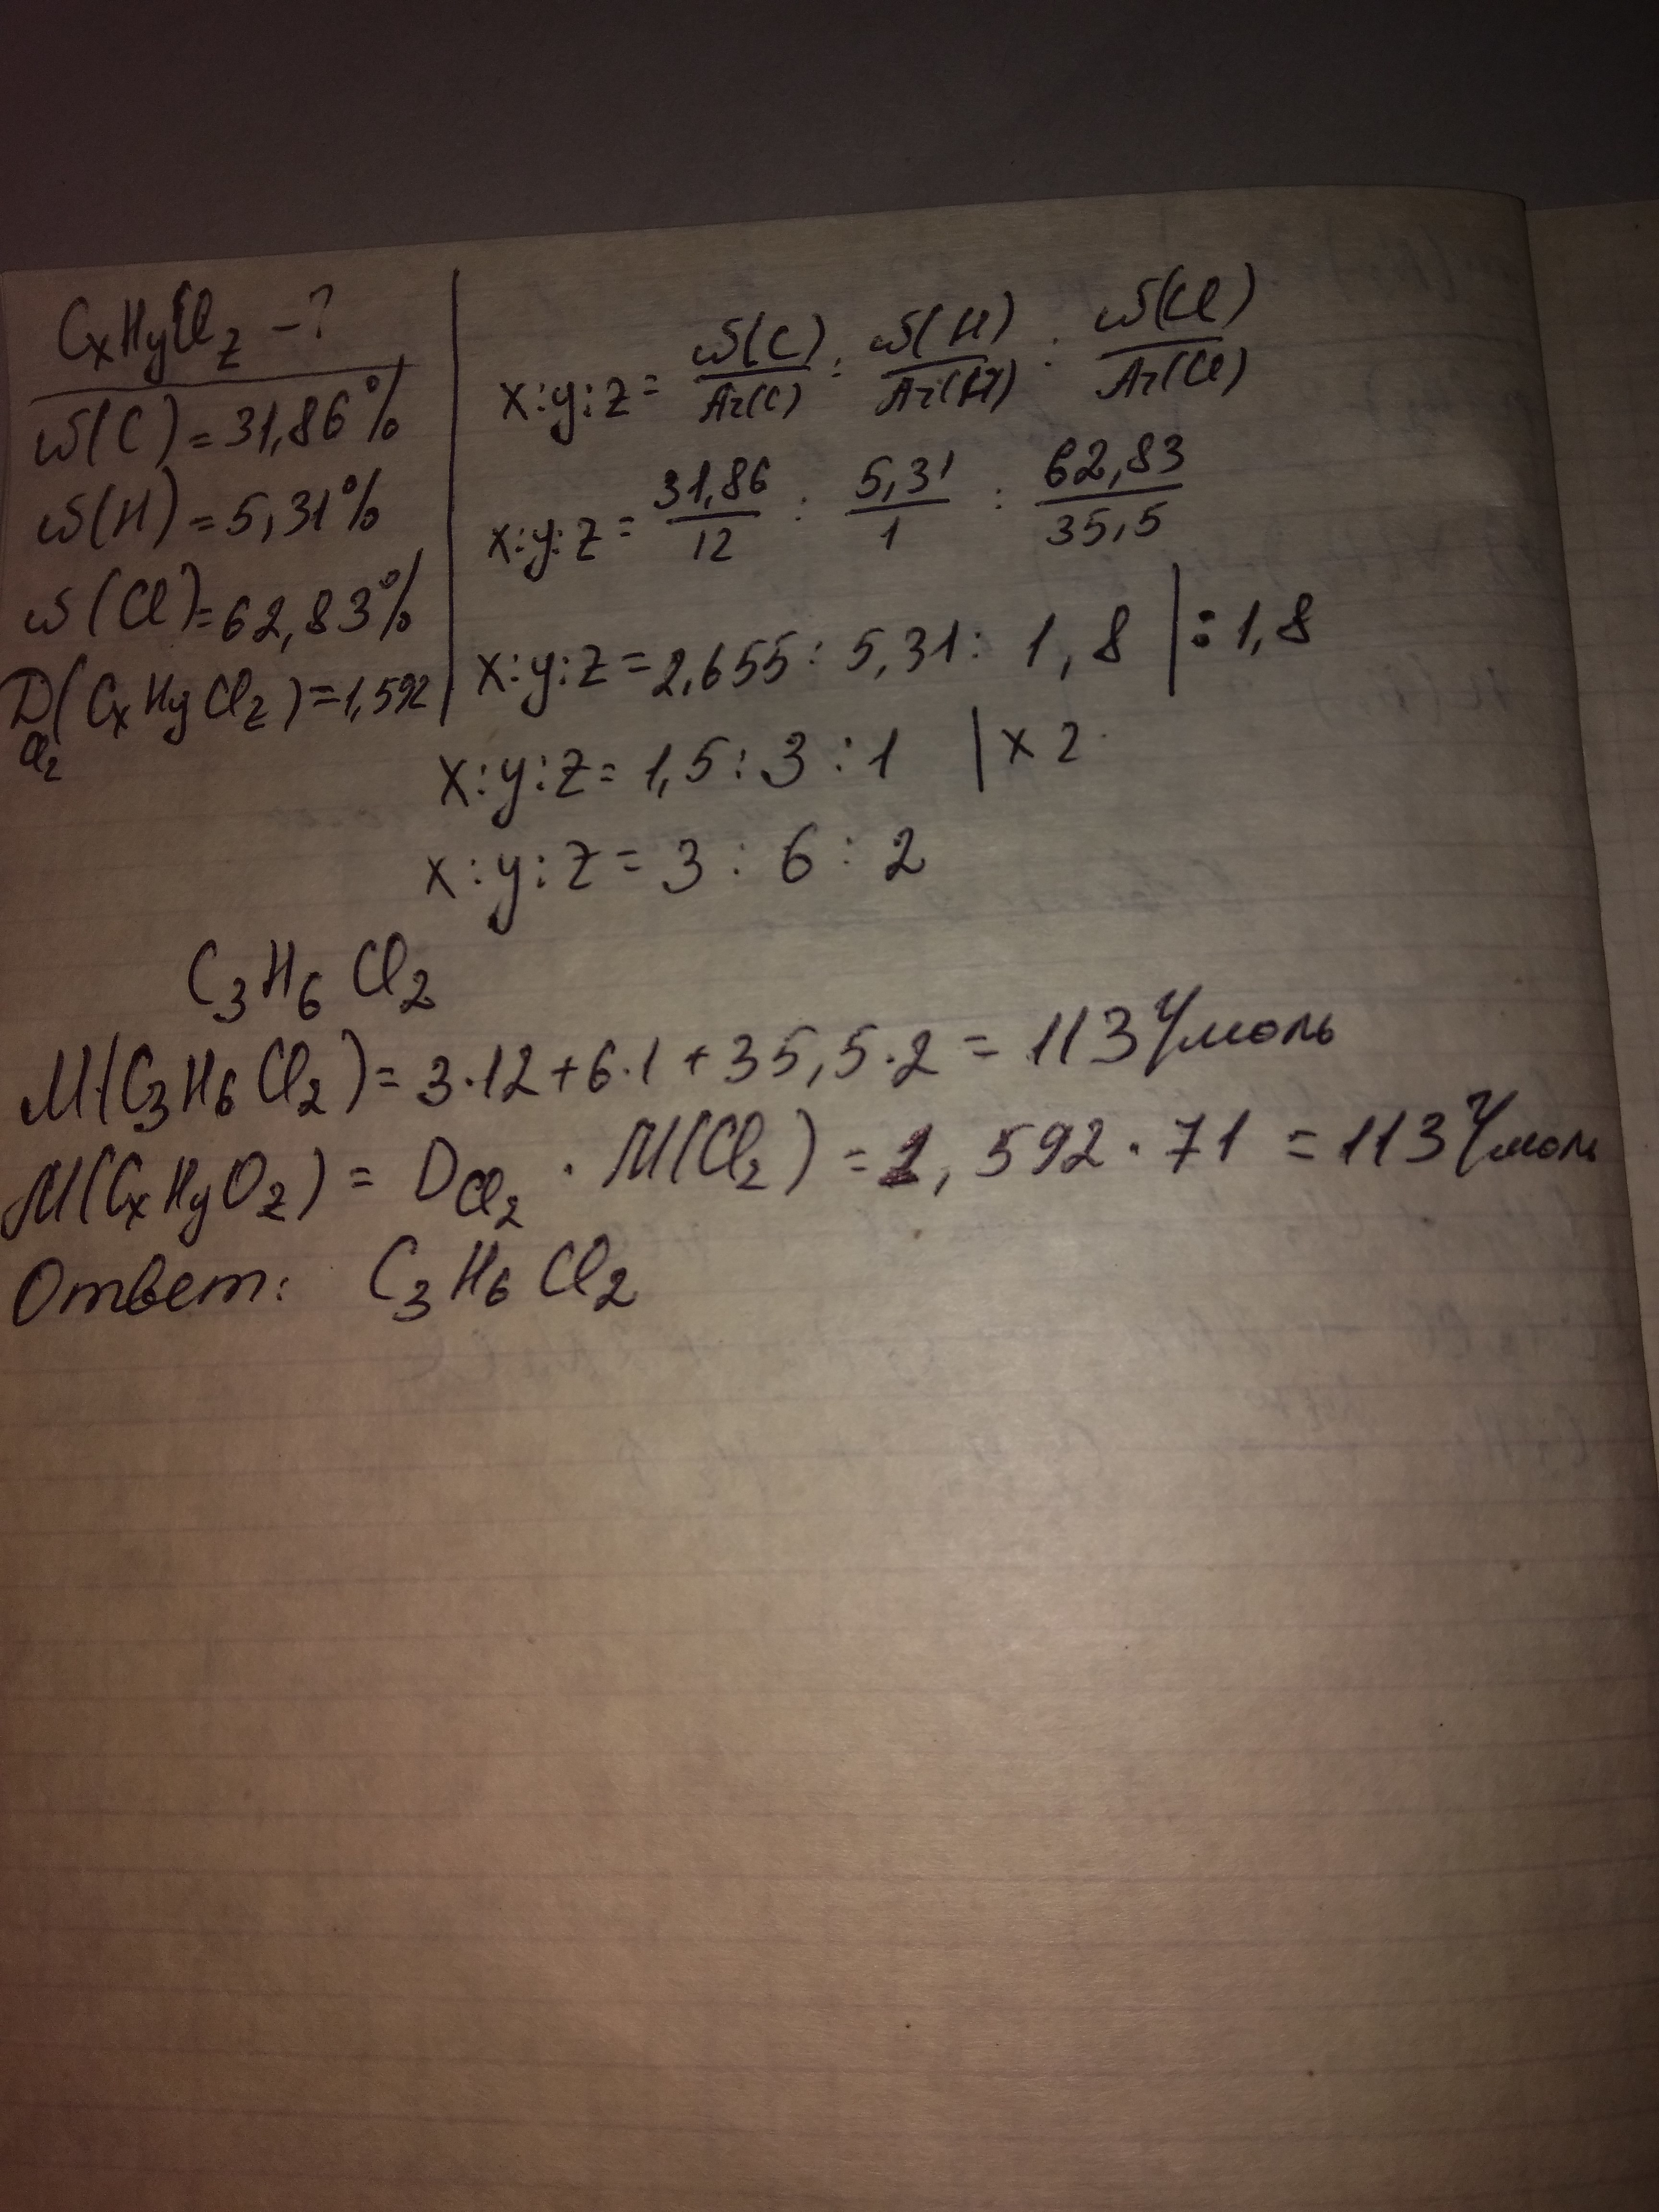 CxHyClz -?
ω(C)=31,86%
ω(H)=5,31%
ω(Cl)=62,83%
D(CxHyClz)=1,592
Cl2
x:y:z= ω(C)/Ar(C) : ω(H)/Ar(H) : ω(Cl)/Ar(Cl)
x:y:z= 31,86/12 : 5,31/1 : 62,83/35,5
x:y:z=2,655: 5,31: 1,8 |:1,8
x:y:z= 1,5:3:1 |x2
x:y:z=3:6:2
C3H6Cl2
M(C3H6Cl2)=3·12+6·1+35,5·2=113 г/моль
M(CxHyOz)= DCl2 · M(Cl2)=1,592·71=113 г/моль
Ответ: C3H6Cl2